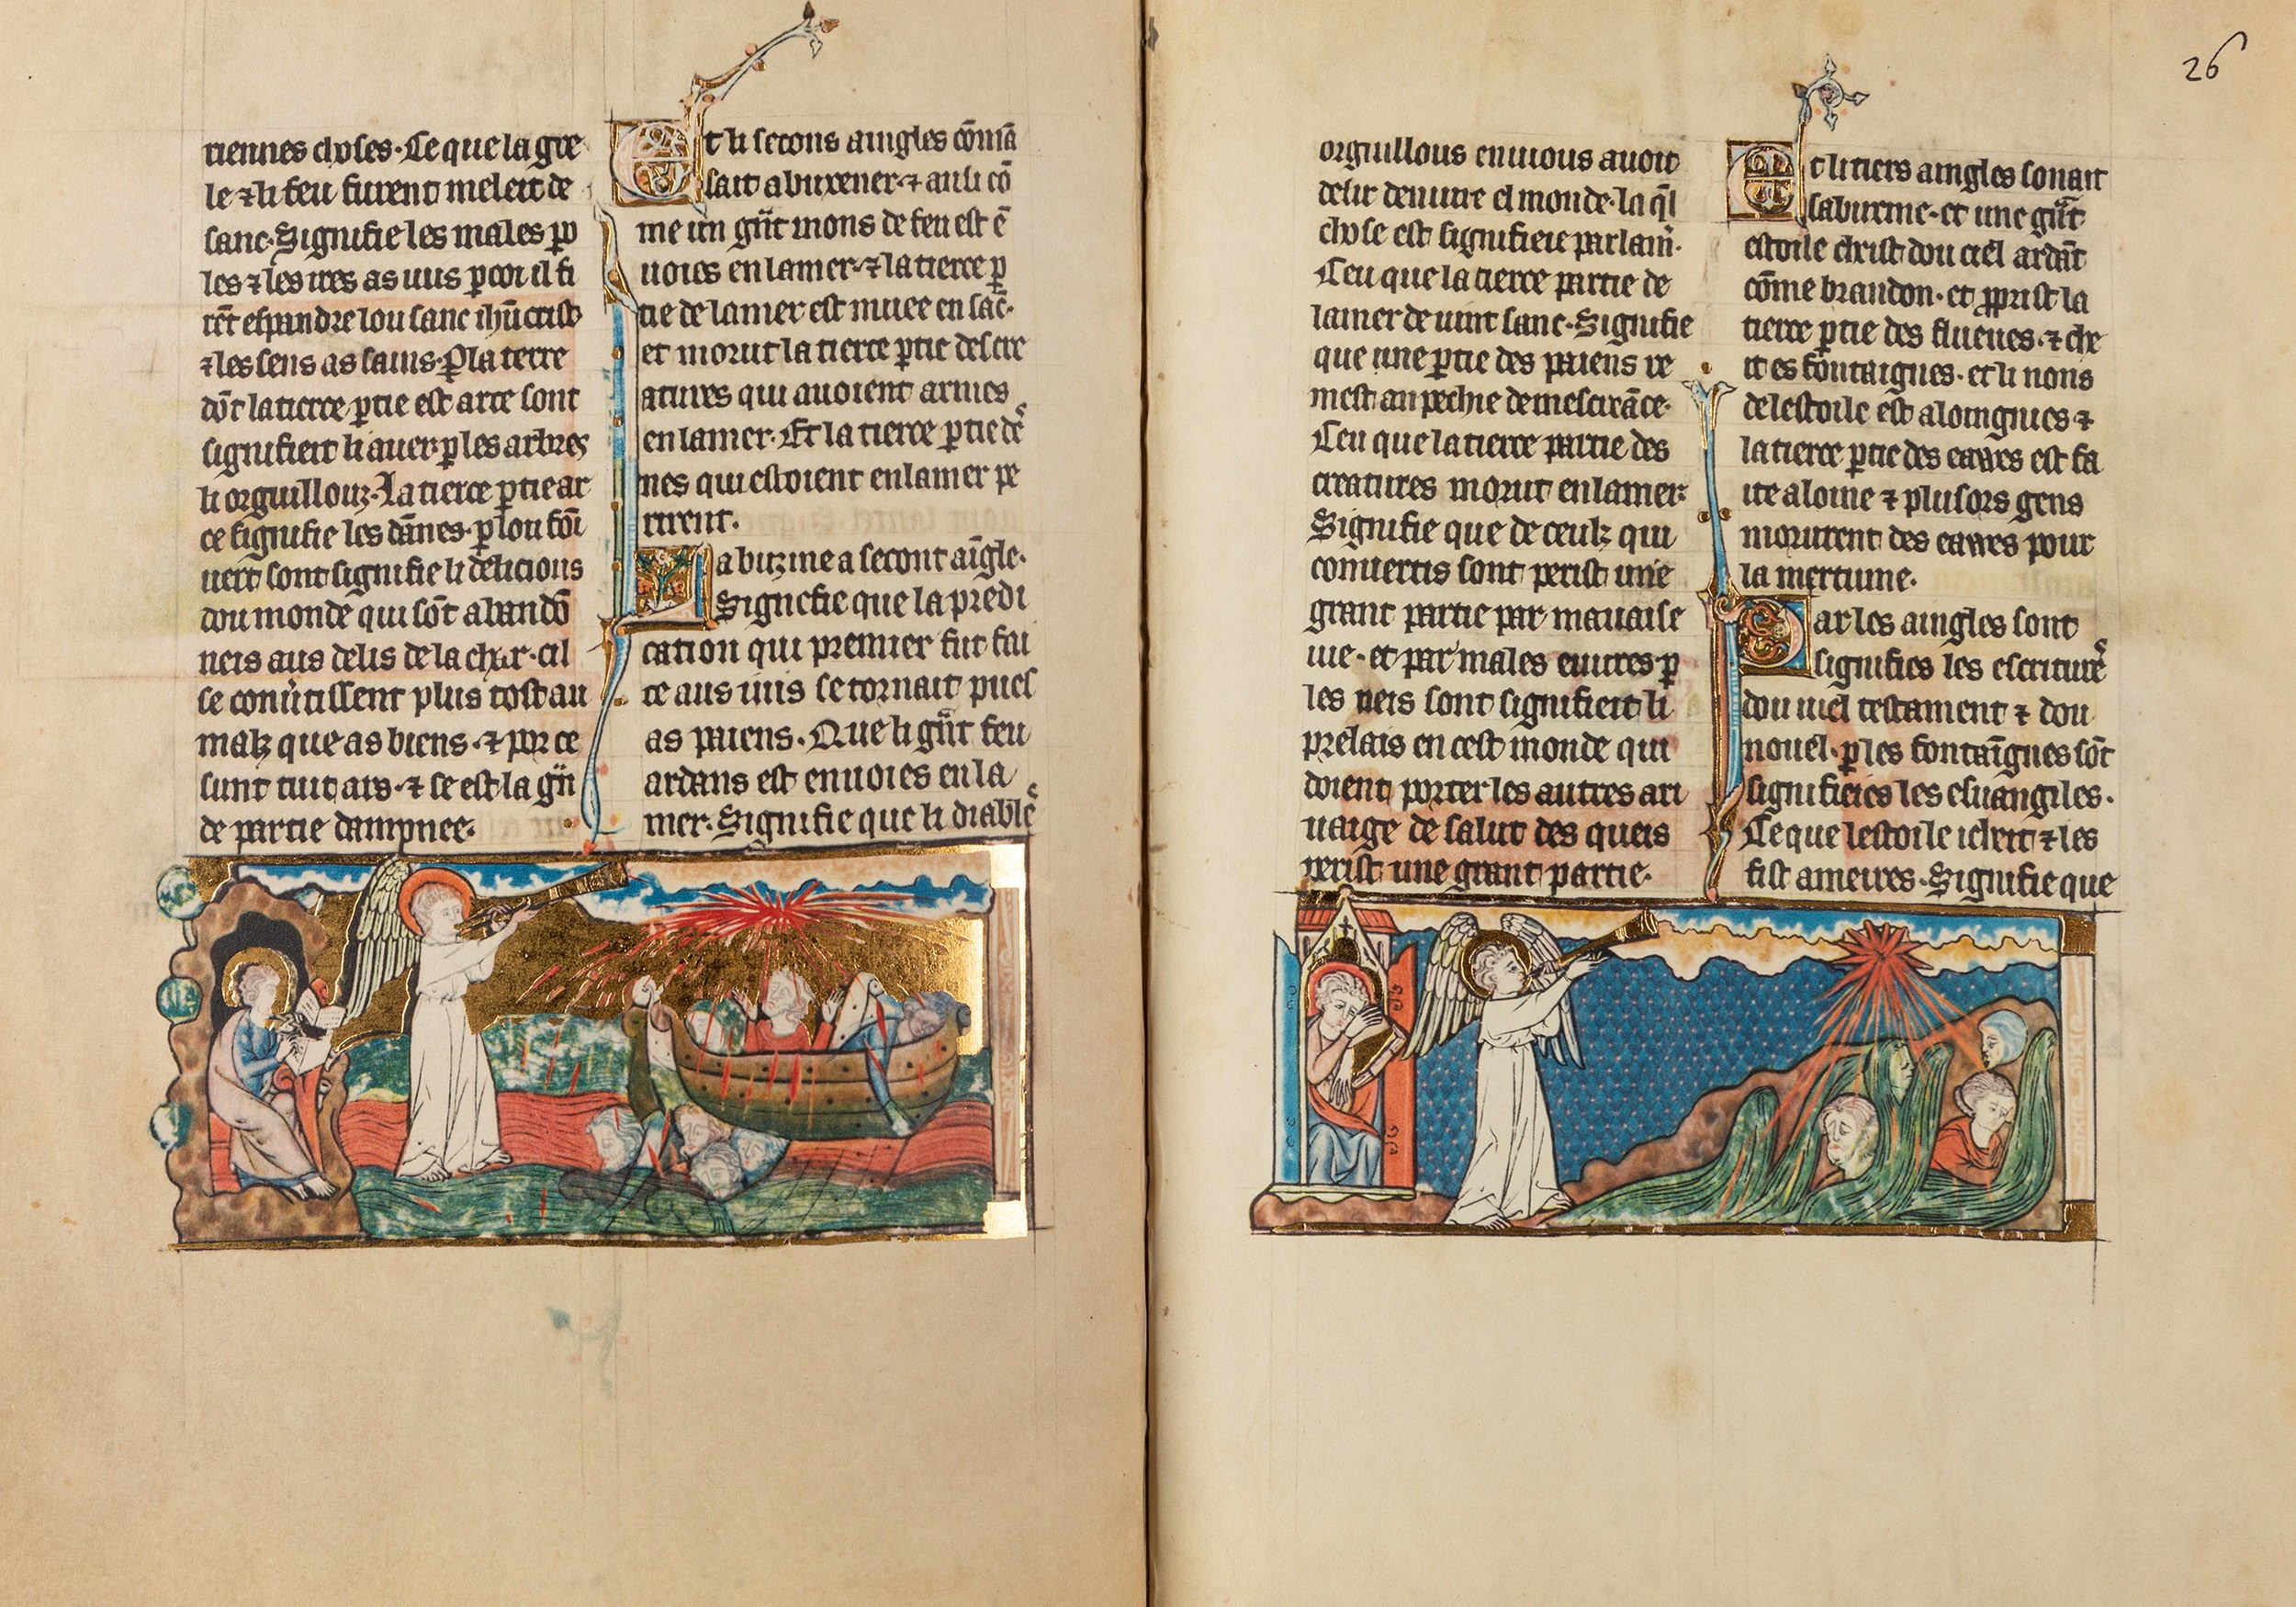 riennes choses. Ce que la gre
le ⁊ li feu furent meleit de
sanc. Signifie les males po
les ⁊ les ires as iuis p̱ coi il fi
rēt espandre lou sanc ihū crist
⁊ les sens as sains. P̱ la terre
dōt la tierce p̱tie est arce sont
signifieit li auer. p̱ les arbres
li orguillouz. La tierce p̱tie ar
ce signifie les dānes. p̱ lou foi
uert sont signifie li delicious
dou monde qui sōt abandō
neis aus delis de la char. cil
se conu̾tissent plus tost au
malz que as biens. ⁊ por ce
sunt tuit ars. ⁊ se est la gn̄
de partie dampnee.
Et li secons aingles cōmā
sait a buxener. ⁊ ausi cō
me un gn̄t mons de feu est ē
uoies en la mer. ⁊ la tierce p̱
tie de la mer est muee en sāc.
et morut la tierce p̱tie des cre
atures qui auoient armes
en la mer. Et la tierce p̱tie de
nes qui estoient en la mer pe
rirent.
La buzine a secont aīgle.
Signefie que la predi
cation qui premier fut fai
te aus iuis se tornait pues
as paiens. Que li gn̄t feu
ardans est enuoies en la
mer. Signifie que li diable
26
orguillous enuious auoit
desir de nuire el monde. la q̄l
chose est signifieie par lam̄.
Ceu que la tierce partie de
la mer deuint sanc. Signifie
que une p̱tie des paiens re
mest an pechie de mescreāce.
Ceu que la tierce partie des
creatures morut en la mer.
Signifie que de ceulz qui
conuertis sont perist une
grant partie par mauaise
uie. et par males euures. p̱
les neis sont signifieit li
prelais en cest monde qui
doient porter les autres ari
uaige de salut des queis
perist une grant partie.
Et li tiers aingles sonait
sa buxine. et une gn̄t
estoile christ dou ciel ardāt
cōme brandon. et p̱prist la
tierce p̱tie des flueues. ⁊ che
it es fontaignes. et li nons
de lestoile est aloingnies ⁊
la tierce p̱tie des eawes est fa
ite aloine ⁊ plusors gens
morurent des eawes pour
la mertume.
Par les aingles sont
signifies les escriture
dou uiel testament ⁊ dou
nouel. p̱ les fontaīgnes sōt
signifieies les esuangiles.
Ce que lestoile i cheit ⁊ les
fist ameires. Signifie que